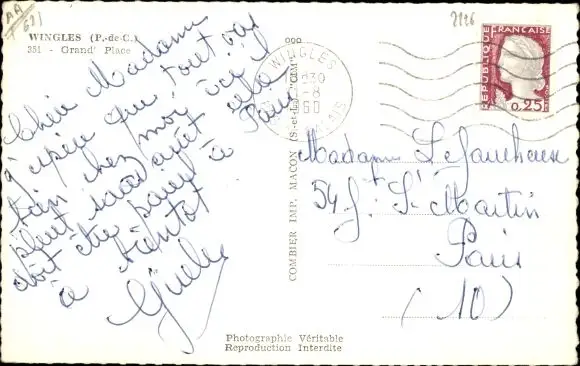 AA
621
WINGLES (P.-de-C.)
351 - Grand' Place
Chère Madame
J'espère que tout va
bien chez moi, ici il
pleut sans arrêt cela
doit être pareil à Paris
à bientôt
Gisèle
COMBIER IMP. MACON (S.-et-L.) "CIM"
WINGLES
-8
60
2126
REPUBLIQUE FRANÇAISE
0,25
Madame
54 f: St Martin
Paris
(10)
Photographie Véritable
Reproduction Interdite